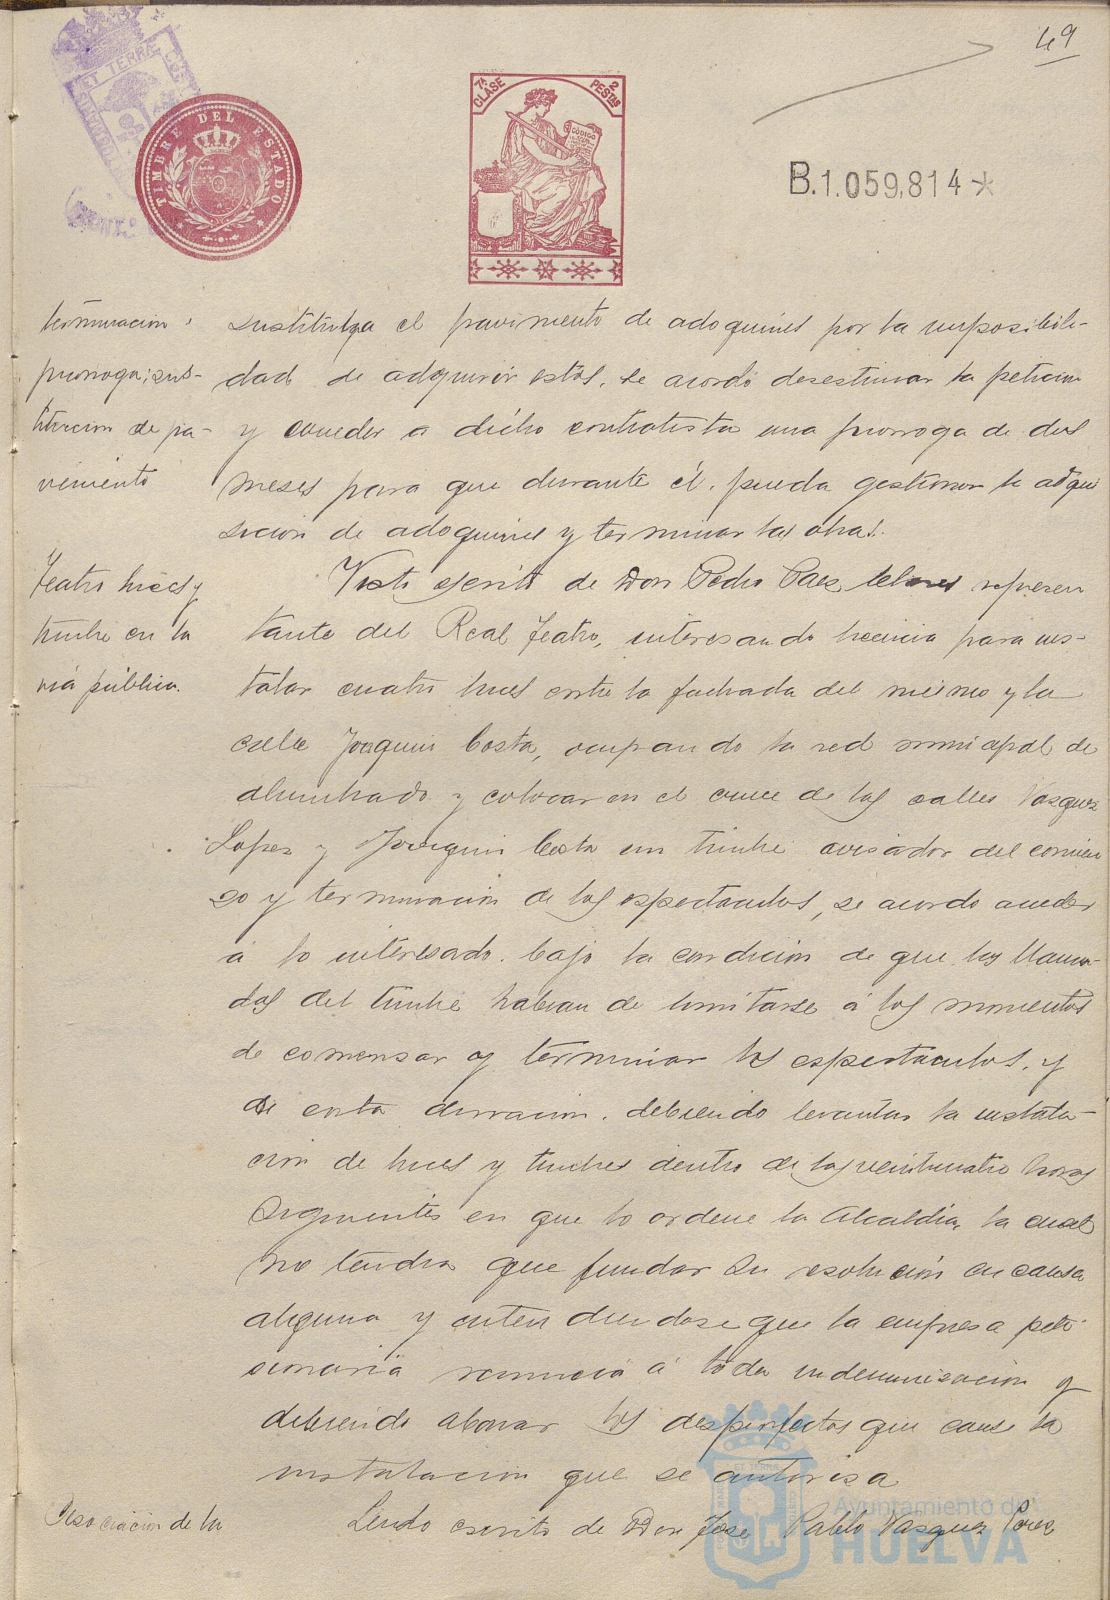 49
7ª CLASE
2 PESTAS
CÓDIGO
TIMBRE DEL ESTADO
ET TERRÆ
B.1.059,814*
terminacion,
prorroga; sus-
titucion de pa-
vimento
sustituya el pavimento de adoquines por la imposibili-
dad de adquirir estos, se acordó desestimar la peticion
y conceder a dicho contratista una prorroga de dos
meses para que durante él, pueda gestionar la adqui
sicion de adoquines y terminar las obras.
Teatro luces y
timbre en la
via pública.
Visto escrito de Don Pedro Paez represen
tante del Real Teatro, interesando licencia para ins-
talar cuatro luces entre la fachada del mismo y la
calle Joaquin Costa, ocupando la red municipal de
alumbrado y colocar en el cruce de las calles Vazquez
Lopez y Joaquin Costa un timbre avisador del comien
zo y terminacion de los espectaculos, se acordo acceder
á lo interesado, bajo la condicion de que las llama-
das del timbre habian de limitarse á los momentos
de comenzar y terminar los espectaculos, y
de corta duracion, debiendo levantar la instala-
cion de luces y timbres dentro de las veinticuatro horas
siguientes en que lo ordene la Alcaldia, la cual
no tendra que fundar su resolucion en causa
alguna y entendiendose que la empresa peti
cionaria renuncia á toda indemnizacion y
debiendo abonar los desperfectos que cause la
instalacion que se autorisa
Asociacion de la
Leido escrito de Don José Pablo Vazquez Perez
Ayuntamiento de
HUELVA